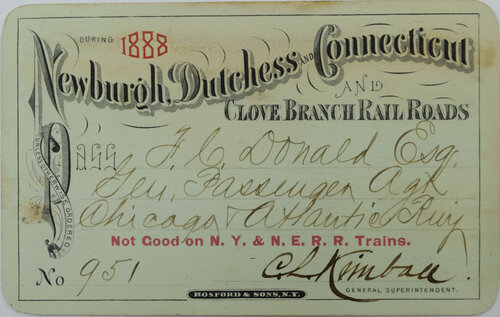 DURING 1888
Newburgh, Dutchess AND Connecticut
AND
CLOVE BRANCH RAIL ROADS
PASS F. C. Donald Esq.
UNLESS OTHERWISE ORDERED
Gen. Passenger Agt
Chicago & Atlantic Rwy
Not Good on N. Y. & N. E. R. R. Trains.
No 951 C L Kimball.
GENERAL SUPERINTENDENT.
HOSFORD & SONS, N.Y.